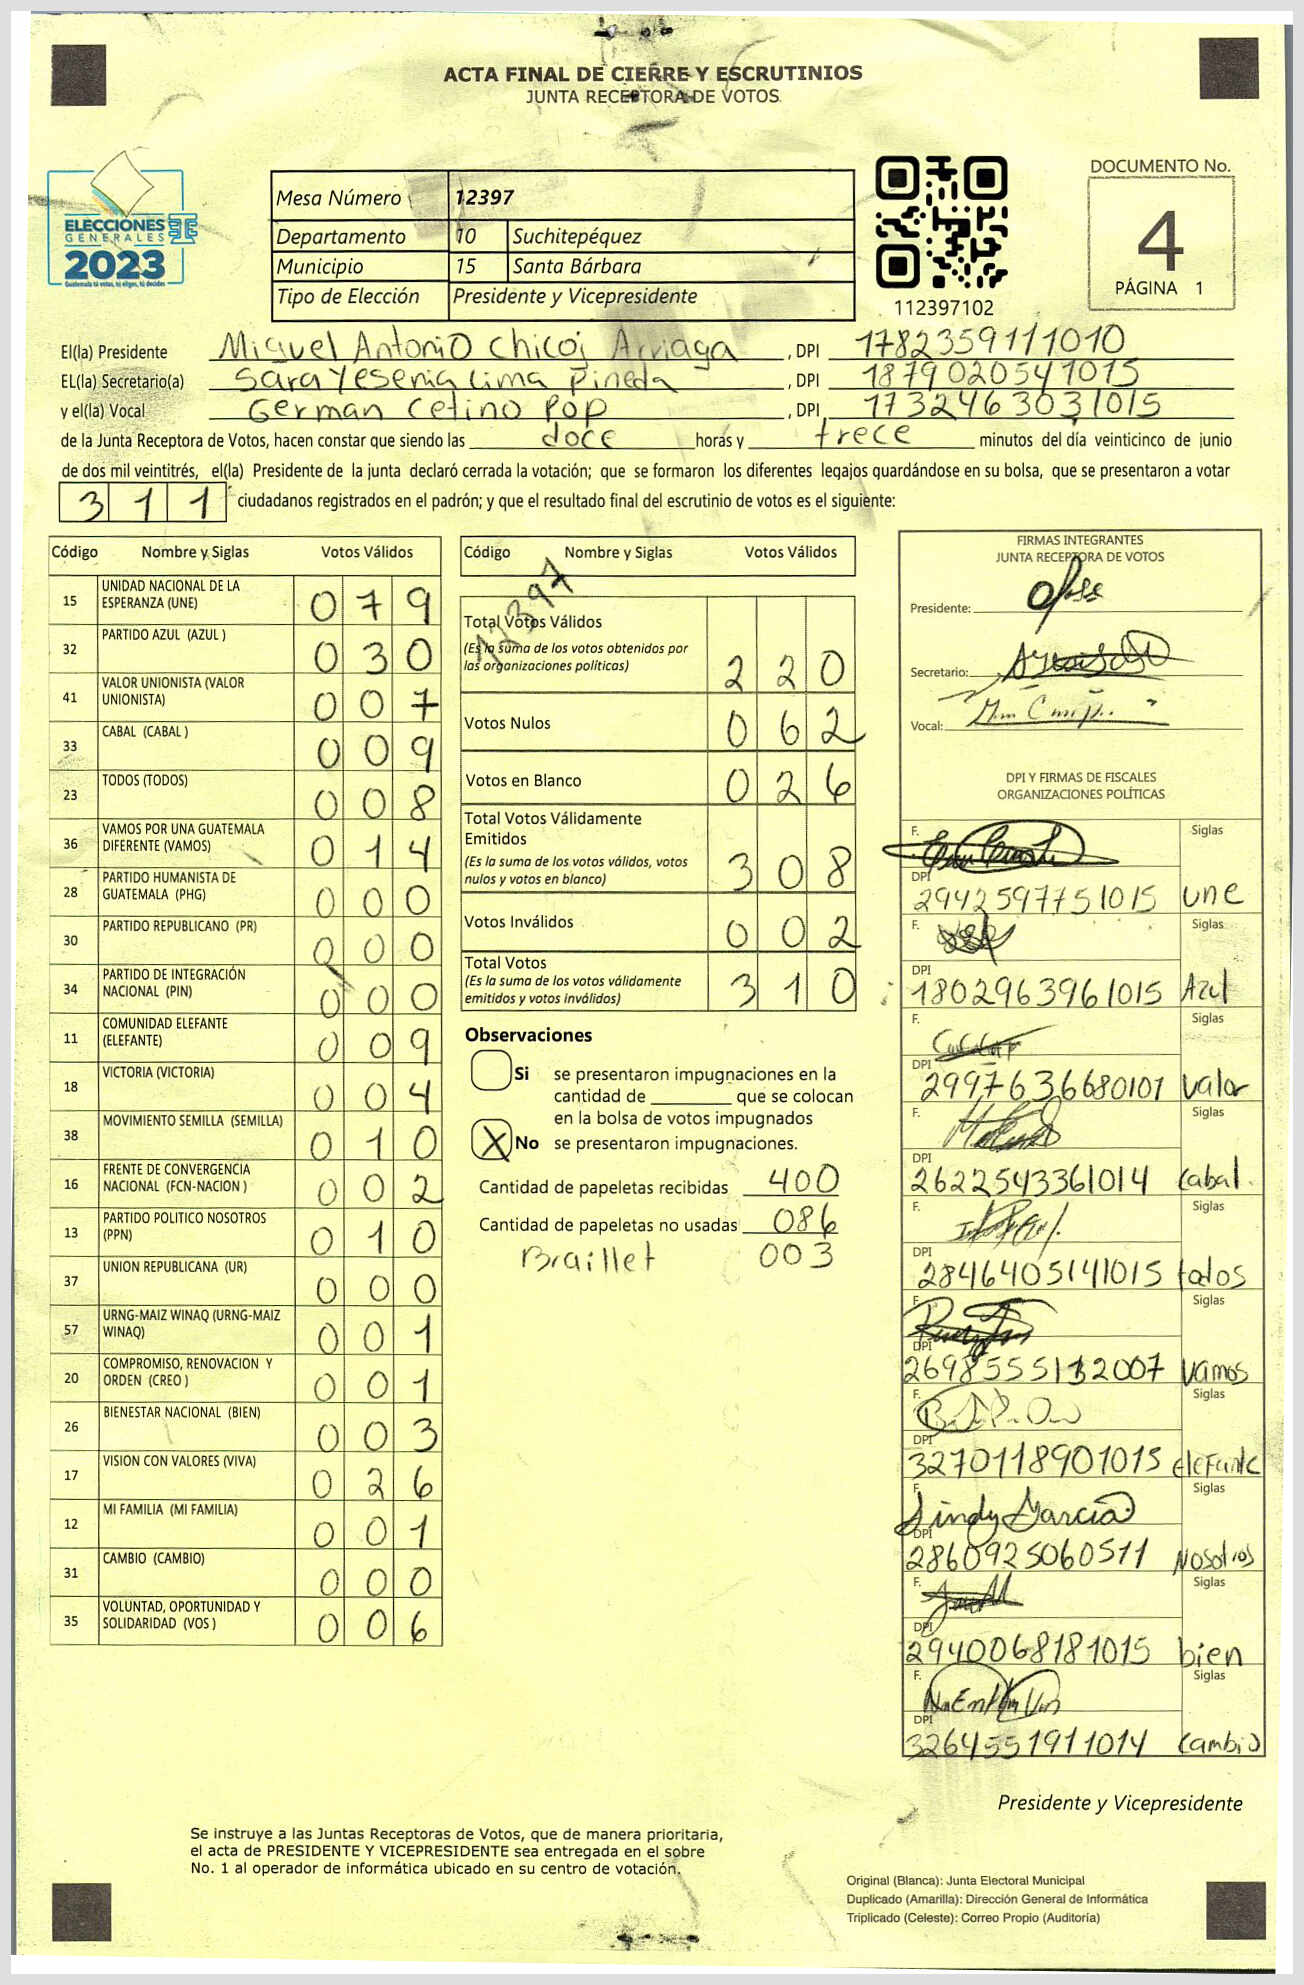 ACTA FINAL DE CIERRE Y ESCRUTINIOS
JUNTA RECEPTORA DE VOTOS
ELECCIONES
GENERALES
2023
Guatemala tú votas, tú eliges, tú decides
Mesa Número 12397
Departamento 10 Suchitepéquez
Municipio 15 Santa Bárbara
Tipo de Elección Presidente y Vicepresidente
112397102
DOCUMENTO No.
4
PÁGINA 1
El(la) Presidente Miguel Antonio Chicoj Arriaga, DPI 1782359111010
EL(la) Secretario(a) Sara Yesenia Lima Pineda, DPI 1879020541015
y el(la) Vocal German Cetino Pop, DPI 1732463031015
de la Junta Receptora de Votos, hacen constar que siendo las doce horas y trece minutos del día veinticinco de junio
de dos mil veintitrés, el(la) Presidente de la junta declaró cerrada la votación; que se formaron los diferentes legajos guardándose en su bolsa, que se presentaron a votar
311 ciudadanos registrados en el padrón; y que el resultado final del escrutinio de votos es el siguiente:
Código Nombre y Siglas Votos Válidos
15 UNIDAD NACIONAL DE LA ESPERANZA (UNE) 079
32 PARTIDO AZUL (AZUL ) 030
41 VALOR UNIONISTA (VALOR UNIONISTA) 007
33 CABAL (CABAL ) 009
23 TODOS (TODOS) 008
36 VAMOS POR UNA GUATEMALA DIFERENTE (VAMOS) 014
28 PARTIDO HUMANISTA DE GUATEMALA (PHG) 000
30 PARTIDO REPUBLICANO (PR) 000
34 PARTIDO DE INTEGRACIÓN NACIONAL (PIN) 000
11 COMUNIDAD ELEFANTE (ELEFANTE) 009
18 VICTORIA (VICTORIA) 004
38 MOVIMIENTO SEMILLA (SEMILLA) 010
16 FRENTE DE CONVERGENCIA NACIONAL (FCN-NACION ) 002
13 PARTIDO POLITICO NOSOTROS (PPN) 010
37 UNION REPUBLICANA (UR) 000
57 URNG-MAIZ WINAQ (URNG-MAIZ WINAQ) 001
20 COMPROMISO, RENOVACION Y ORDEN (CREO ) 001
26 BIENESTAR NACIONAL (BIEN) 003
17 VISION CON VALORES (VIVA) 026
12 MI FAMILIA (MI FAMILIA) 001
31 CAMBIO (CAMBIO) 000
35 VOLUNTAD, OPORTUNIDAD Y SOLIDARIDAD (VOS ) 006
Código Nombre y Siglas Votos Válidos
12397
Total Votos Válidos
(Es la suma de los votos obtenidos por
las organizaciones políticas) 220
Votos Nulos 062
Votos en Blanco 026
Total Votos Válidamente
Emitidos
(Es la suma de los votos válidos, votos
nulos y votos en blanco) 308
Votos Inválidos 002
Total Votos
(Es la suma de los votos válidamente
emitidos y votos inválidos) 310
Observaciones
Si se presentaron impugnaciones en la
cantidad de ________ que se colocan
en la bolsa de votos impugnados
X No se presentaron impugnaciones.
Cantidad de papeletas recibidas 400
Cantidad de papeletas no usadas 086
Braillet 003
FIRMAS INTEGRANTES
JUNTA RECEPTORA DE VOTOS
Presidente:
Secretario:
Vocal:
DPI Y FIRMAS DE FISCALES
ORGANIZACIONES POLÍTICAS
F. Siglas
DPI
2942597751015 une
F. Siglas
DPI
1802963961015 Azul
F. Siglas
DPI
2997636680101 valor
F. Siglas
DPI
2622543361014 cabal.
F. Siglas
DPI
2846405141015 todos
F. Siglas
DPI
2698555132007 vamos
F. Siglas
DPI
3270118901015 eleFante
F. Sindy García Siglas
DPI
2860925060511 Nosotros
F. Siglas
DPI
2940068181015 bien
F. Siglas
DPI
3264551911014 cambio
Presidente y Vicepresidente
Se instruye a las Juntas Receptoras de Votos, que de manera prioritaria,
el acta de PRESIDENTE Y VICEPRESIDENTE sea entregada en el sobre
No. 1 al operador de informática ubicado en su centro de votación.
Original (Blanca): Junta Electoral Municipal
Duplicado (Amarilla): Dirección General de Informática
Triplicado (Celeste): Correo Propio (Auditoría)